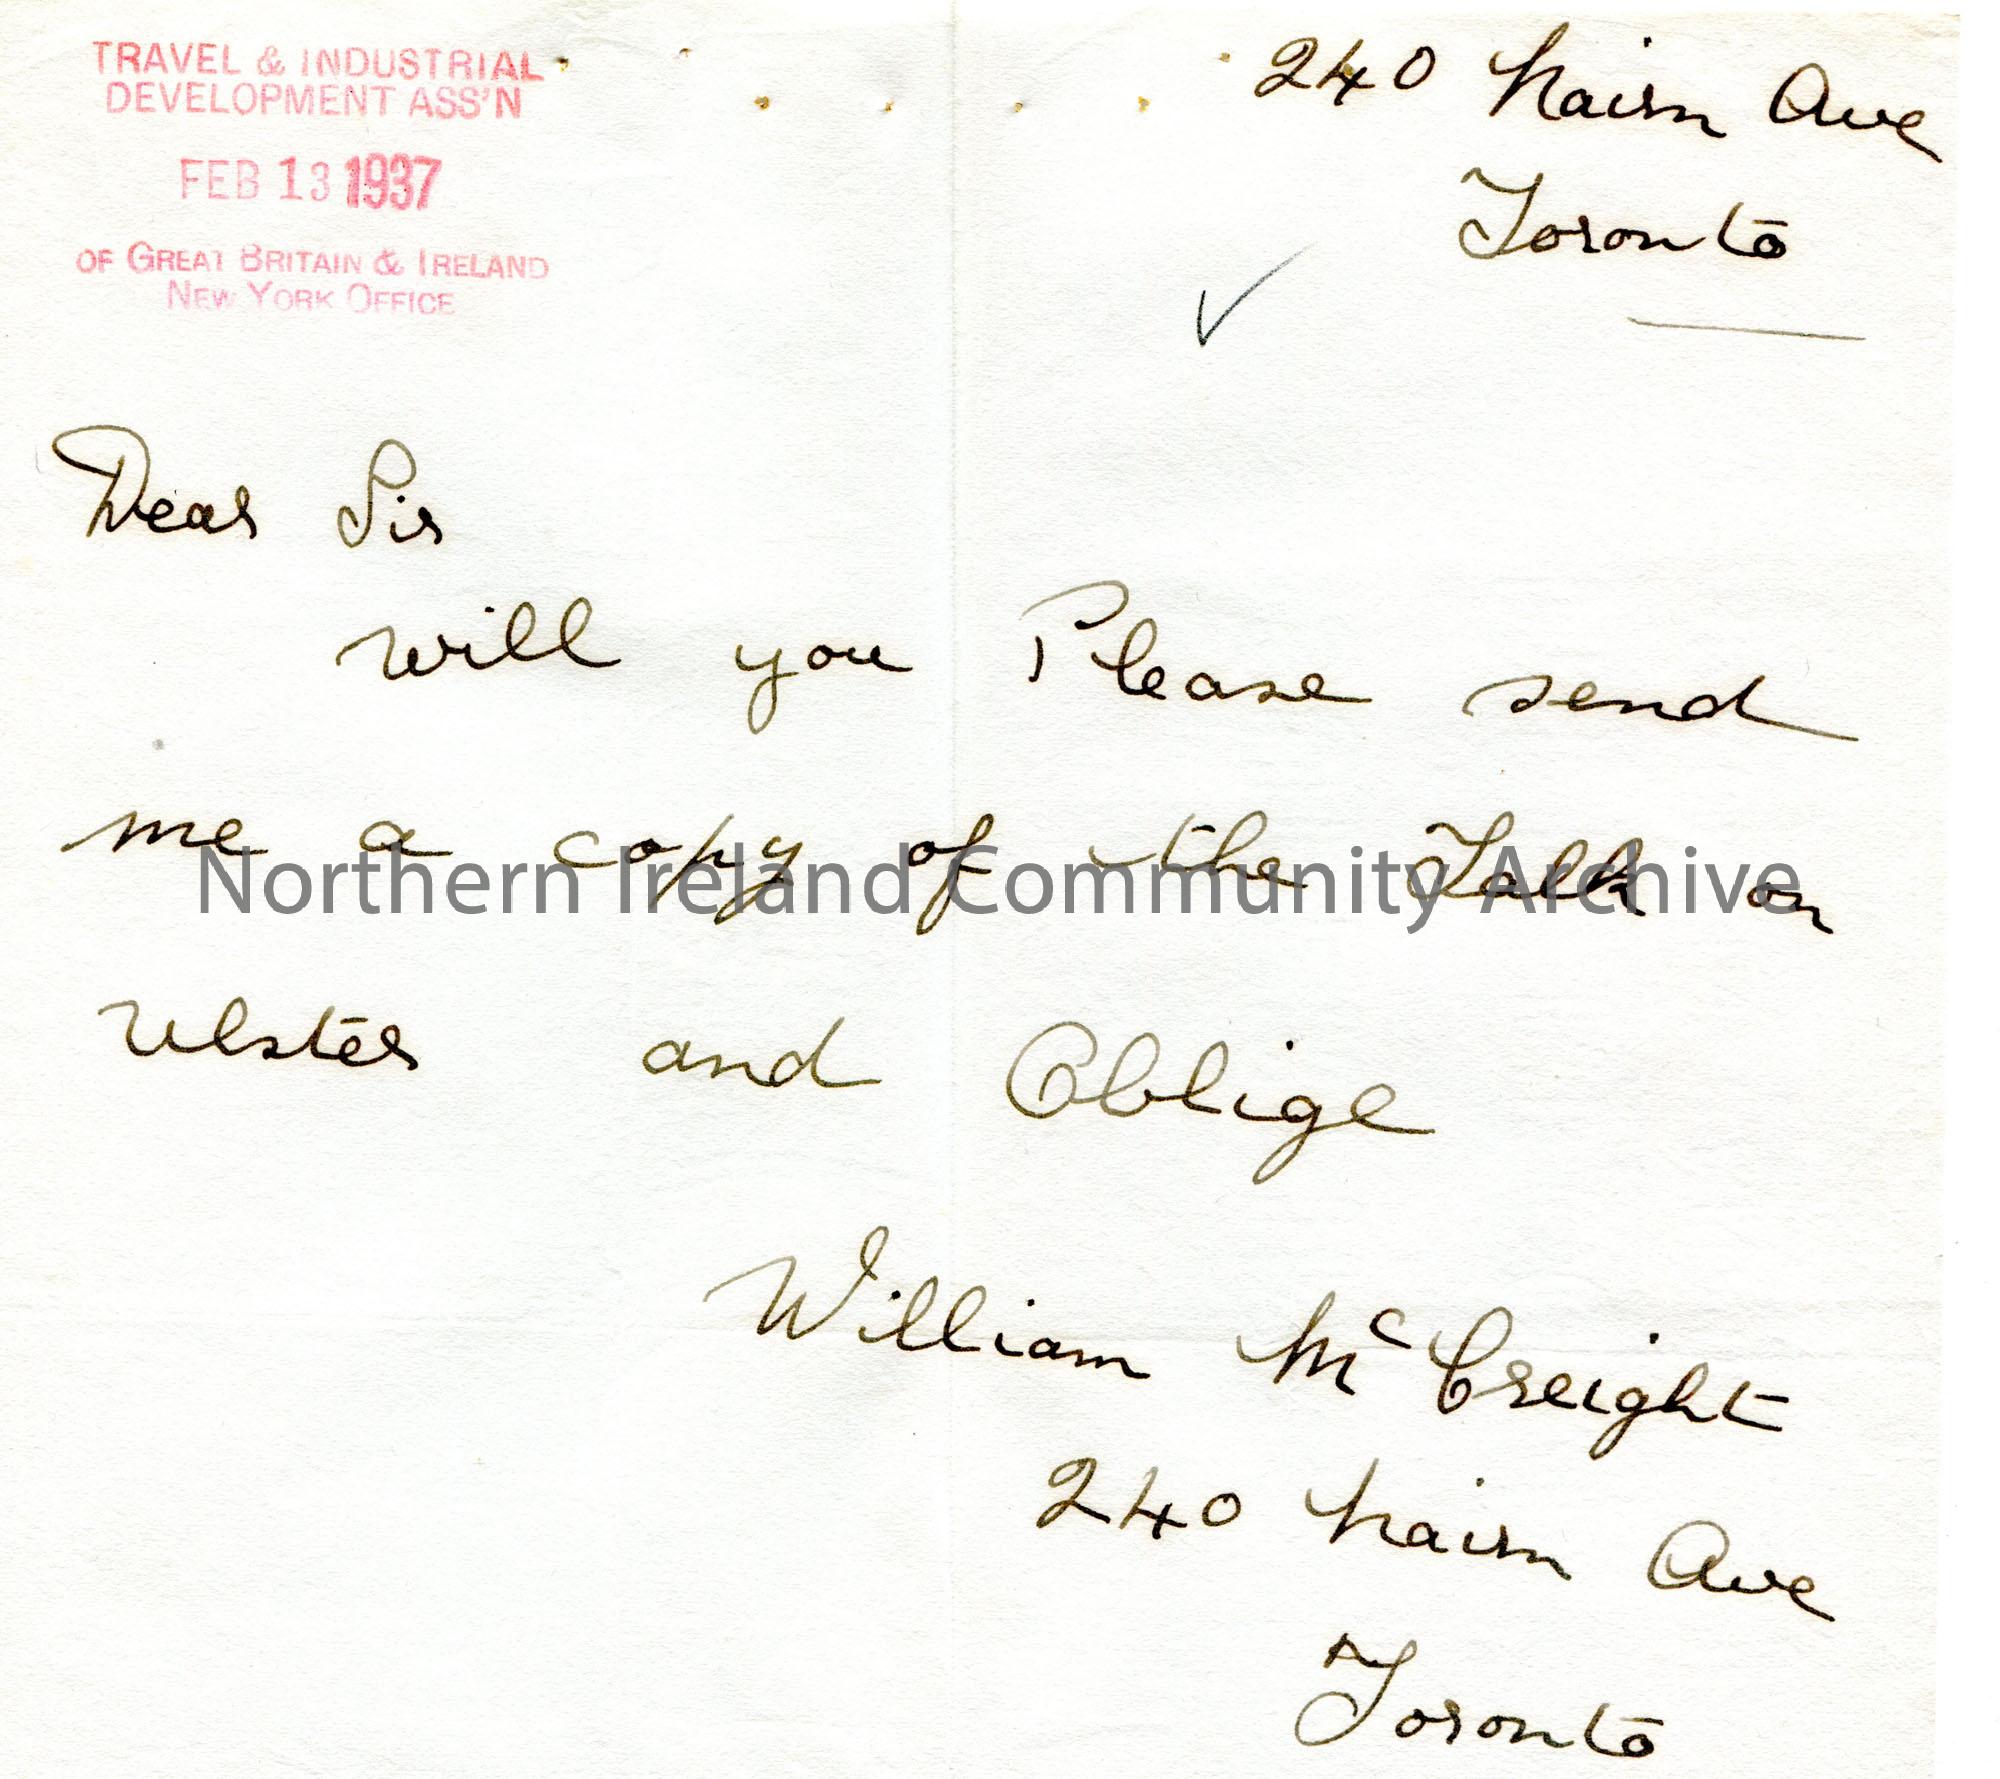 TRAVEL & INDUSTRIAL
DEVELOPMENT ASS'N
FEB 13 1937
OF GREAT BRITAIN & IRELAND
NEW YORK OFFICE
240 Nairn Ave
Toronto
Dear Sir
will you Please send
me a copy of the Talk on
Northern Ireland Community Archive
Ulster and Oblige
William McCreight
240 Nairn Ave
Toronto